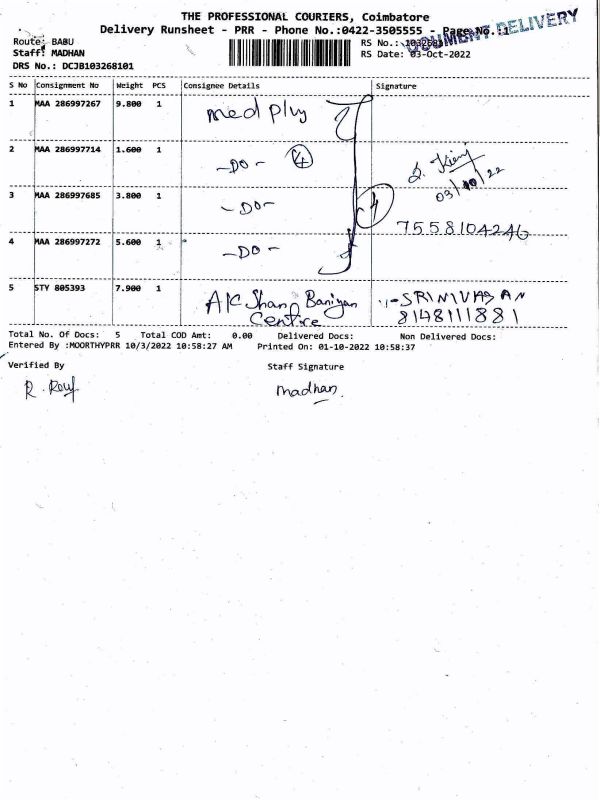 THE PROFESSIONAL COURIERS, Coimbatore
Delivery Runsheet - PRR - Phone No.:0422-3505555 - Page No.:1
DELIVERY
Route: BABU
RS No.:
Staff: MADHAN
RS Date: 03-Oct-2022
DRS No.: DCJB103268101
S No Consignment No Weight PCS Consignee Details Signature
1 MAA 286997267 9.800 1 med plus
2 MAA 286997714 1.600 1 -DO- 4
03/10/22
3 MAA 286997685 3.800 1 -DO- 4
7558104246
4 MAA 286997272 5.600 1 -DO-
5 STY 805393 7.900 1 Baniyan SRINIVASAN
Centre 8148111881
Total No. Of Docs: 5 Total COD Amt: 0.00 Delivered Docs: Non Delivered Docs:
Entered By :MOORTHYPRR 10/3/2022 10:58:27 AM Printed On: 01-10-2022 10:58:37
Verified By Staff Signature
madhan.